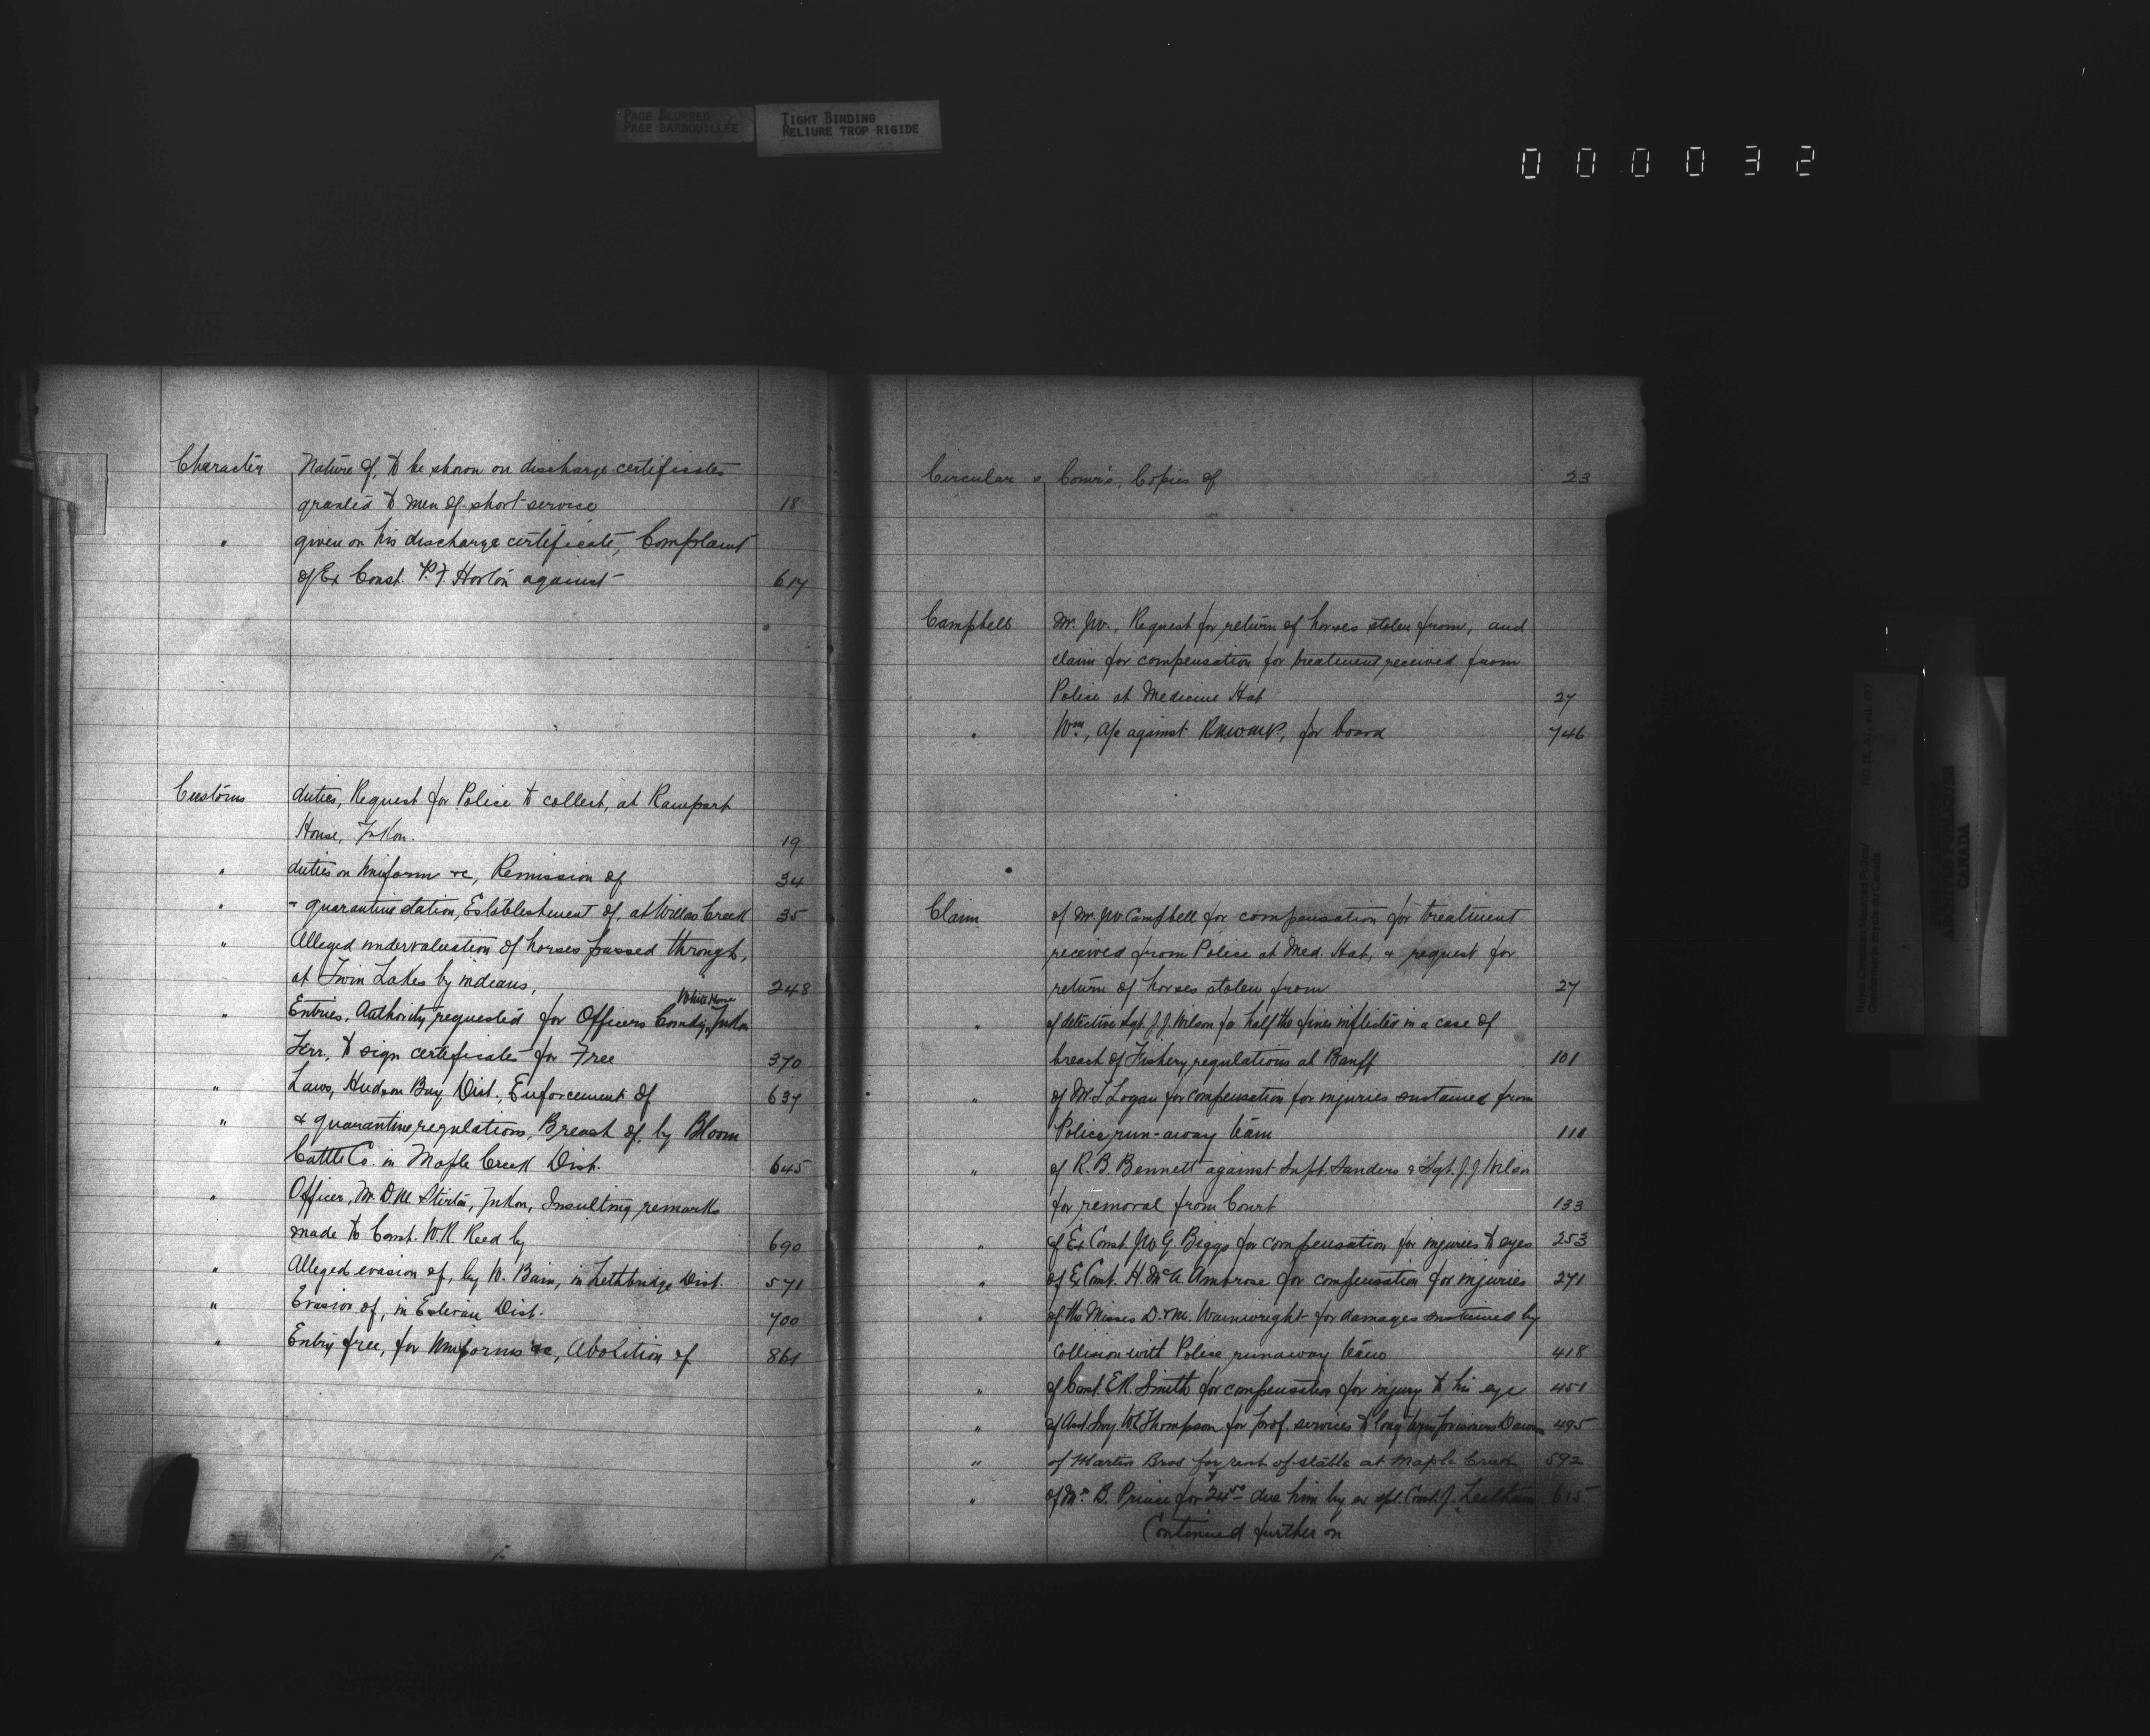 PAGE BLURRED
PAGE BARBOUILLÉE
TIGHT BINDING
RELIURE TROP RIGIDE
000032
Character Nature of, to be shown on discharge certificates
granted to men of short service 18
" given on his discharge certificate, Complaint
of Ex Const. P. F. Horton against 617
Customs duties, Request for Police to collect, at Rampart
House, Yukon. 19
" duties on Uniform &c, Remission of 34
" " quarantine station, Establishment of, at Willow Creek 35
" Alleged undervaluation of horses passed through,
at Twin Lakes by indians, 248
White Horse
" Entries, Authority requested for Officers Comdg, Yukon
Terr., to sign certificates for Free 370
" Laws, Hudson Bay Dist., Enforcement of 637
" & quarantine regulations, Breach of, by Bloom
Cattle Co. in Maple Creek Dist. 645
" Officer, Mr. D.M. Yukon, Insulting remarks
made to Const. W.R. Reed by 690
" Alleged evasion of, by W. Bain, in Lethbridge Dist. 571
" Evasion of, in Estevan Dist. 700
" Entry free, for Uniforms &c, Abolition of 861
Circular s Comr's, Copies of 23
Campbell Mr. J.W., Request for return of horses stolen from, and
claim for compensation for treatment received from
Police at Medicine Hat 27
" Wm, a/c against RNWMP, for board 746
Claim of Mr. J.W. Campbell for compensation for treatment
received from Police at Med. Hat, & request for
return of horses stolen from 27
" of detective Sgt. J.J. Wilson for half the fines inflicted in a case of
breach of Fishery regulations at Banff 101
" of Mr. T. Logan for compensation for injuries sustained from
Police run-away team 111
" of R. B. Bennett against Supt. Sanders & Sgt. J.J. Wilson
for removal from Court 133
" of Ex Const. J.W.G. Biggs for compensation for injuries to eyes 253
" of Ex Const. H. McA. Ambrose for compensation for injuries 271
" of the Misses D. & M. Wainwright for damages sustained by
collision with Police runaway team 418
" of Const. E.R. Smith for compensation for injury to his eye 451
" of Asst Surg. W.E. Thompson for prof. services to long term prisoners Dawson 495
" of Martin Bros for rent of stable at Maple Creek 592
" of Mr. B. Prince for 24.50 due him by ex spl. Const. J. 615
Continued further on
Royal Canadian Mounted Police/
Gendarmerie royale du Canada
ARCHIVES PUBLIQUES
CANADA